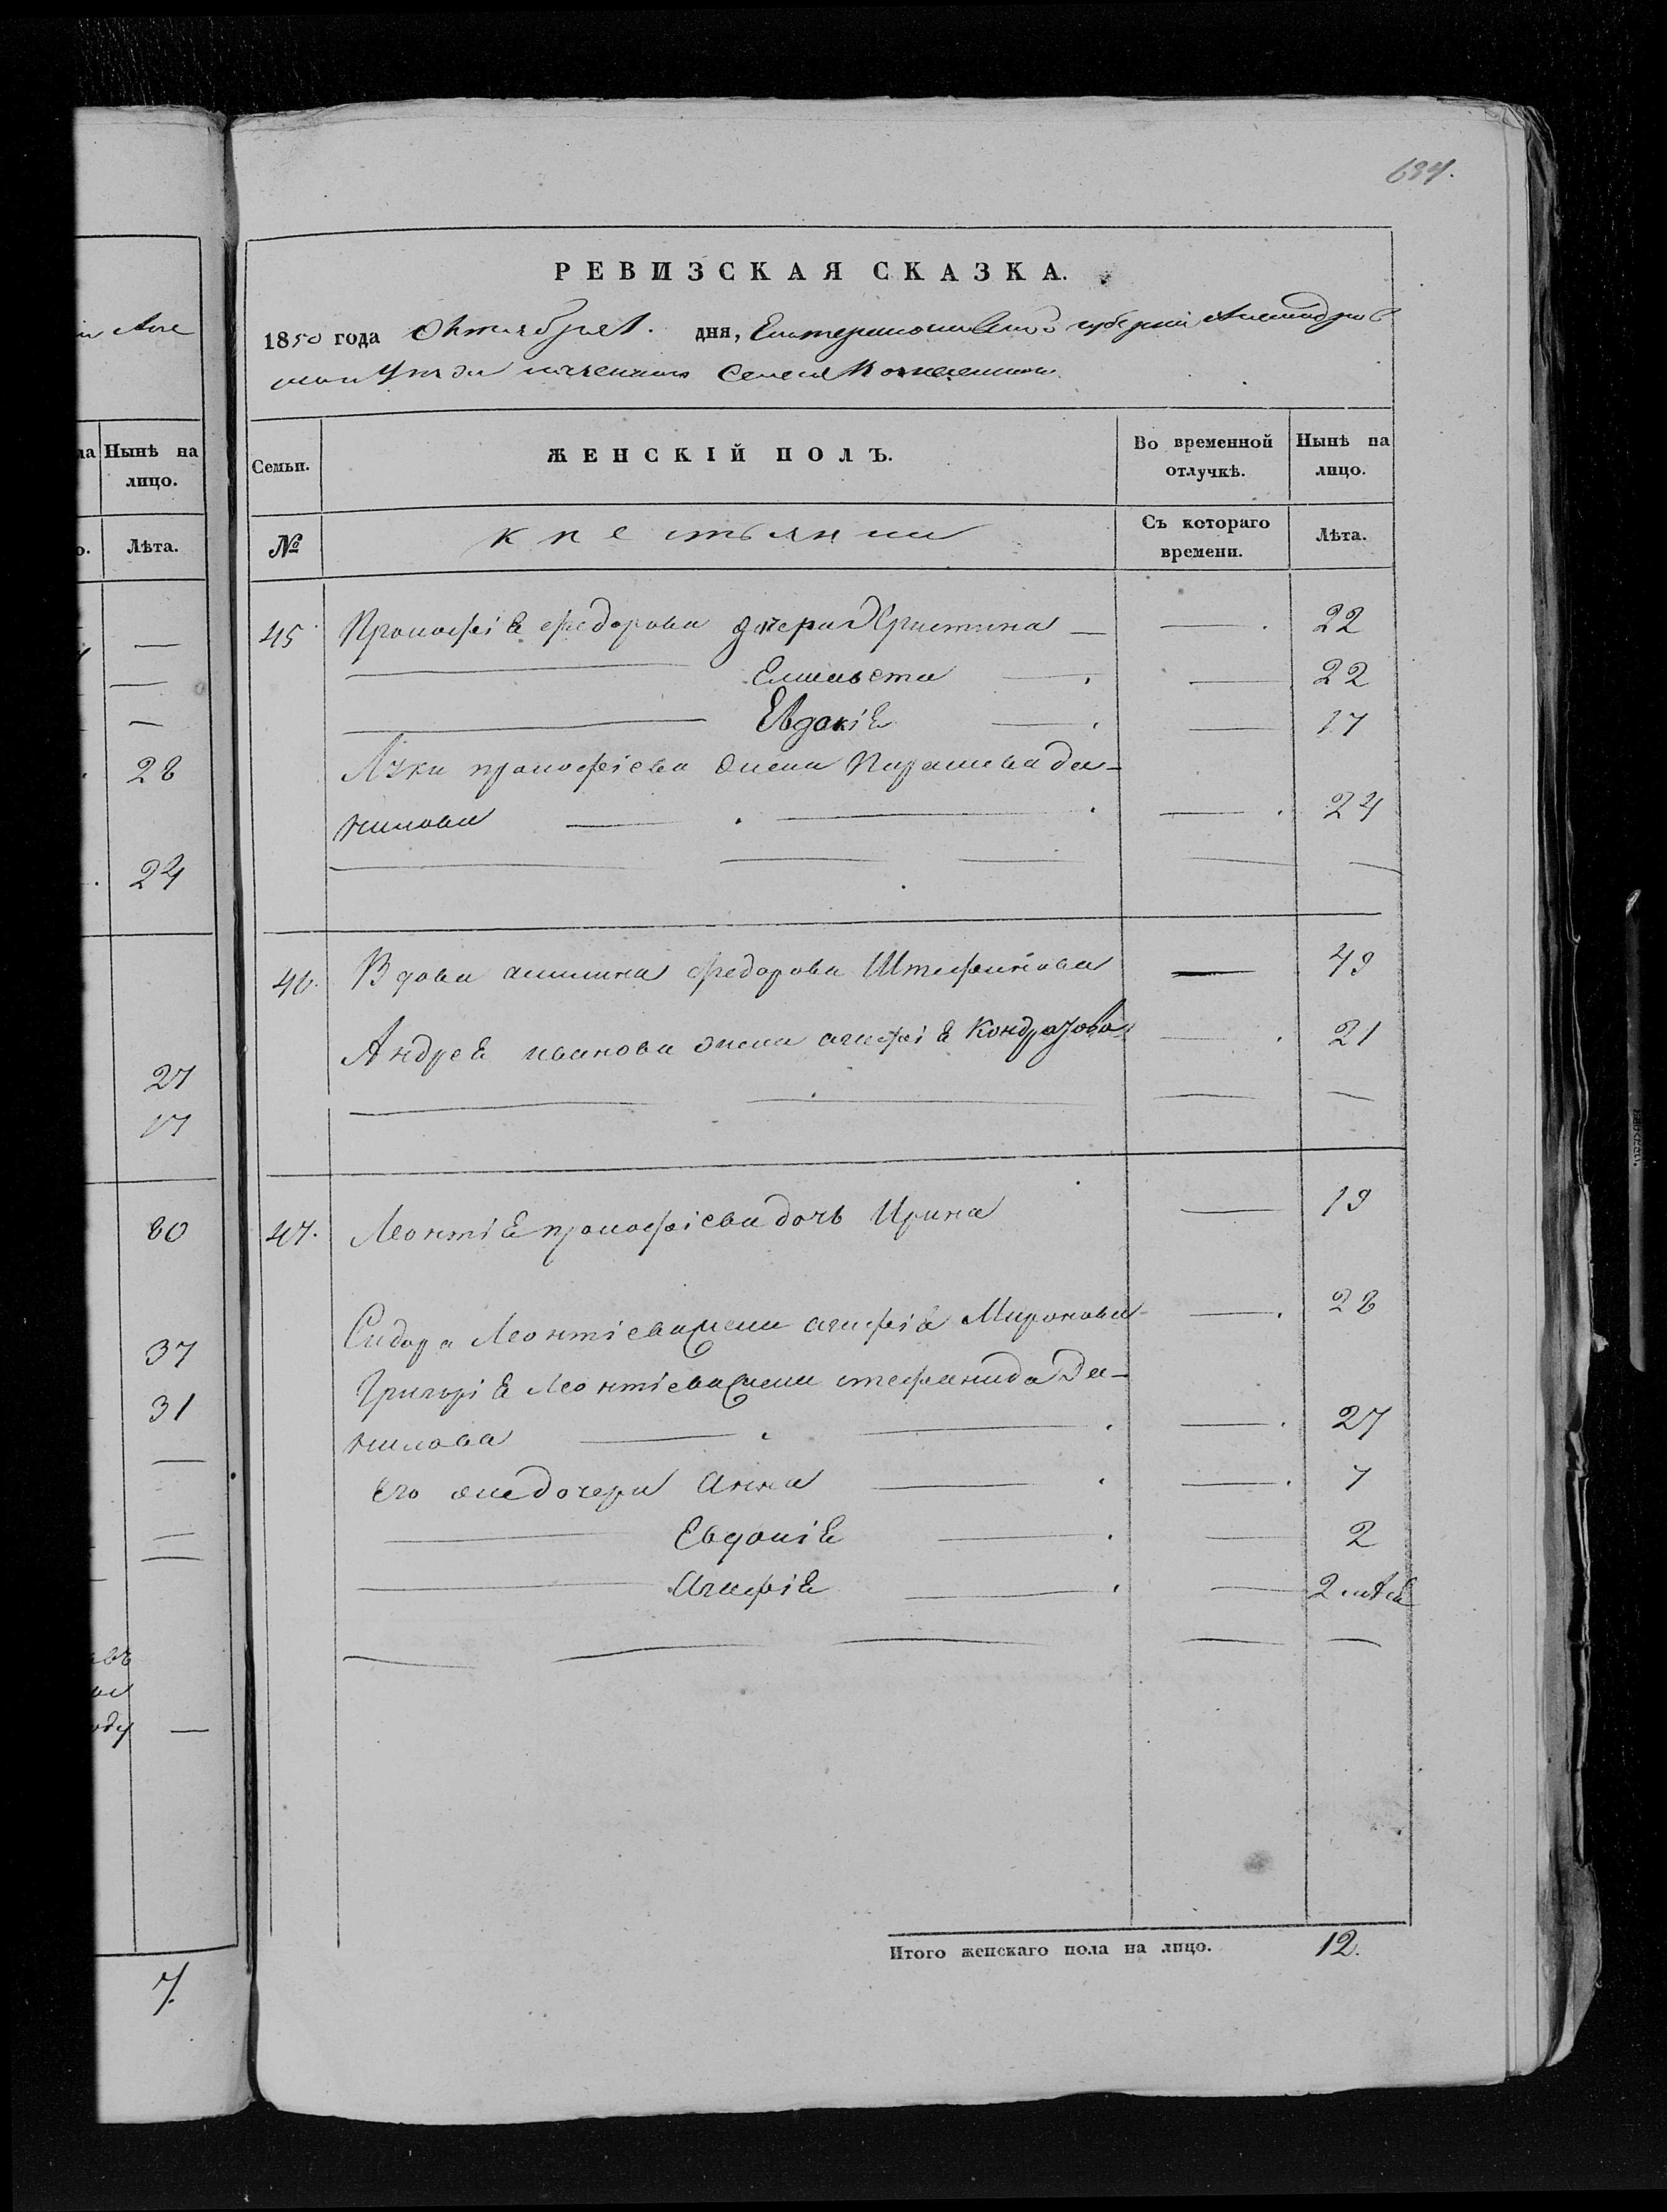 634.
РЕВИЗСКАЯ СКАЗКА.
1850 года Октября 1. дня, Екатеринославской губернии Александров
ской Уезда казенного Селения
Семьи.
ЖЕНСКІЙ ПОЛЪ.
Во временной отлучкѣ.
Нынѣ на лицо.
№
крестьяни
Съ котораго времени.
Лѣта.
45 Прокофія федорова дочери Христина — — 22
Елисавета — — 22
Евдокія — — 17
Луки прокофіева жена Параскева Да-
нилова — — 24
46. Вдова акилина федорова Штефанова — 49
Андрея иванова жена агафія Кондратова — 21
47. Леонтія прокофіева дочь Ирина — 19
Сидора Леонтіева жена агафія Миронова — 28
Григорія Леонтіева жена стефанида Да-
нилова — — 27
Его же дочери Анна — — 7
Евдокія — — 2
Агафія — — 2
Итого женскаго пола на лицо. 12.
Нынѣ на лицо.
Лѣта.
28
24
27
17
60
37
31
7.